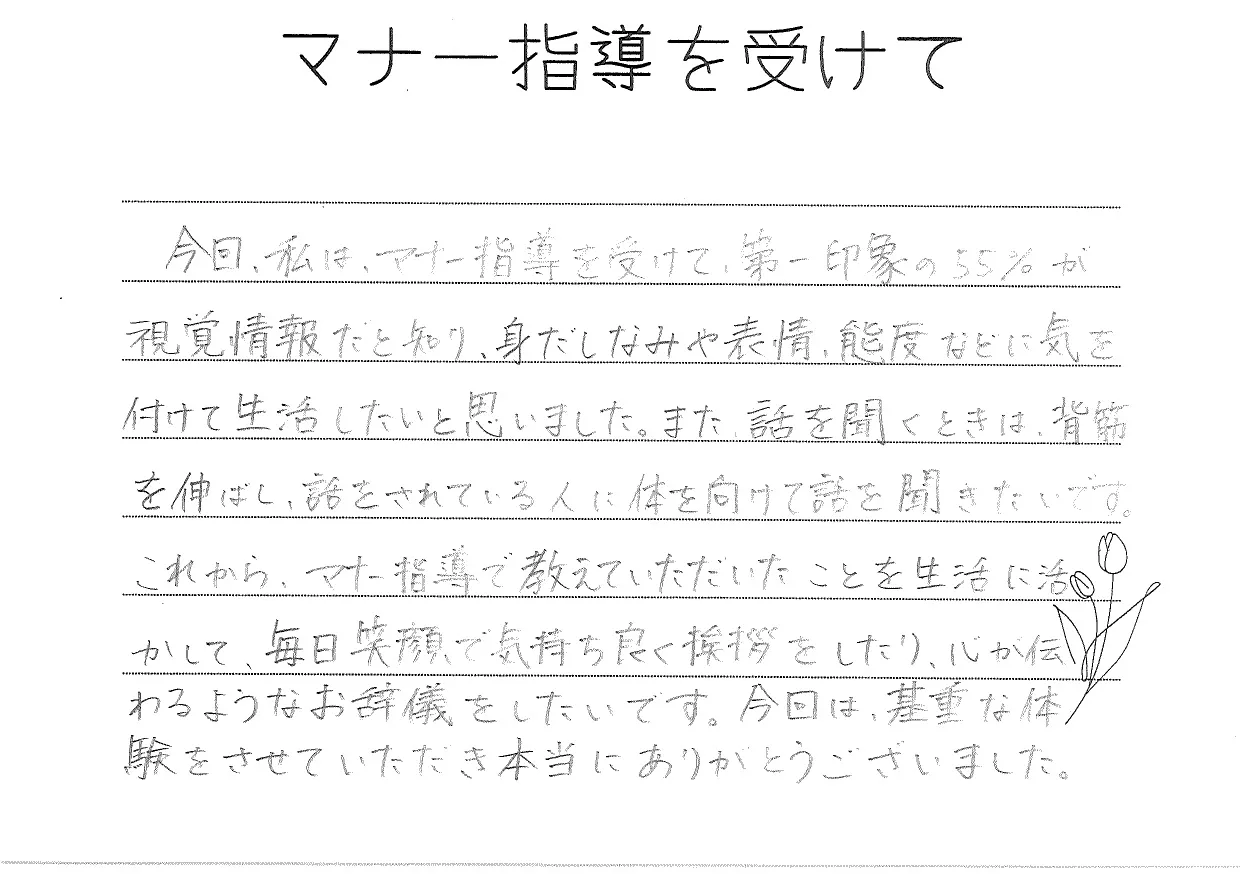 マナー指導を受けて
今回、私は、マナー指導を受けて、第一印象の55%が
視覚情報だと知り、身だしなみや表情、態度などに気を
付けて生活したいと思いました。また、話を聞くときは、背筋
を伸ばし、話をされている人に体を向けて話を聞きたいです。
これから、マナー指導で教えていただいたことを生活に活
かして、毎日笑顔で気持ち良く挨拶をしたり、心が伝
わるようなお辞儀をしたいです。今回は、基重な体
験をさせていただき本当にありがとうございました。